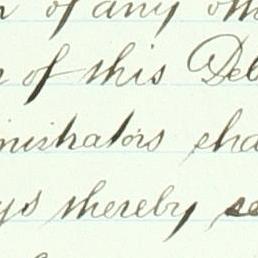 of any oth
of this Deb
inistrators sha
ys thereby se